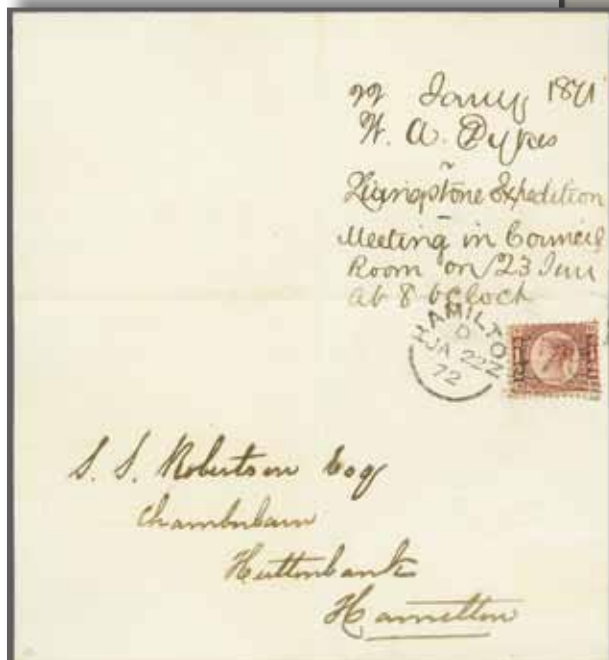 22 Jany 1871
W. A. Dykes
Livingstone Expedition
Meeting in Council
Room on 23 Jany
at 8 oClock
HAMILTON
D
JA 22
72
S. S. Robertson Esq
Chamberlain
Huttonbank
Hamilton